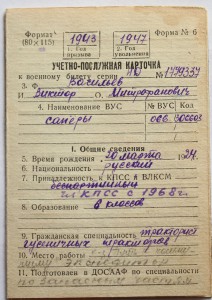 Формат 1943 1947 Форма № 6
(80×115) 1. Год призыва 2. Год увольнения
УЧЕТНО-ПОСЛУЖНАЯ КАРТОЧКА
к военному билету серии НЮ № 1799337
3. Ф. Васильев
Виктор О. Митрофанович
4. Наименование ВУС № ВУС Код
саперы
1. Общие сведения
5. Время рождения 20 марта 1924
6. Национальность русский
7. Принадлежность к КПСС и ВЛКСМ
беспартийный
чл КПСС с 1968 г.
8. Образование 6 классов
9. Гражданская специальность тракторист
гусеничных тракторов
10. Место работы
11. Подготовлен в ДОСААФ по специальности